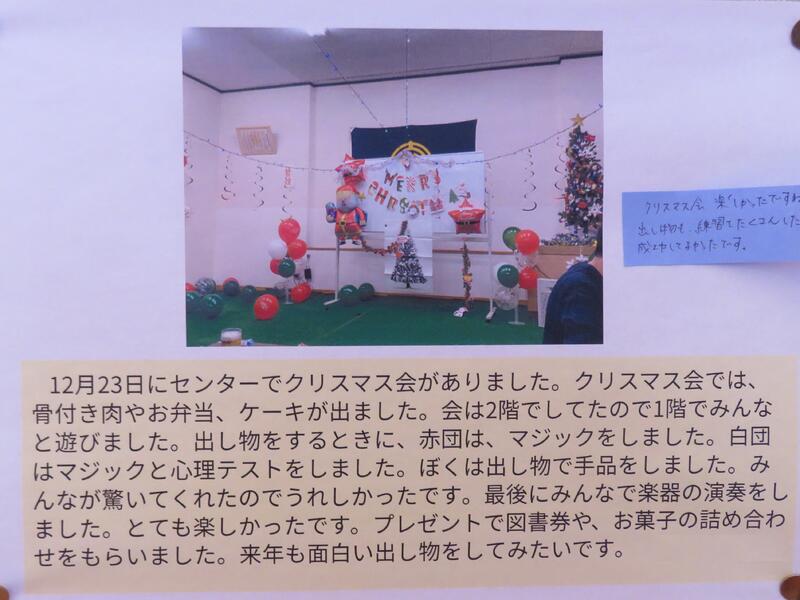 MERRY
CHRISTMAS
クリスマス会 楽しかったですね
出し物も、練習たくさんした
成功してよかったです。
12月23日にセンターでクリスマス会がありました。クリスマス会では、
骨付き肉やお弁当、ケーキが出ました。会は2階でしてたので1階でみんな
と遊びました。出し物をするときに、赤団は、マジックをしました。白団
はマジックと心理テストをしました。ぼくは出し物で手品をしました。み
んなが驚いてくれたのでうれしかったです。最後にみんなで楽器の演奏をし
ました。とても楽しかったです。プレゼントで図書券や、お菓子の詰め合わ
せをもらいました。来年も面白い出し物をしてみたいです。